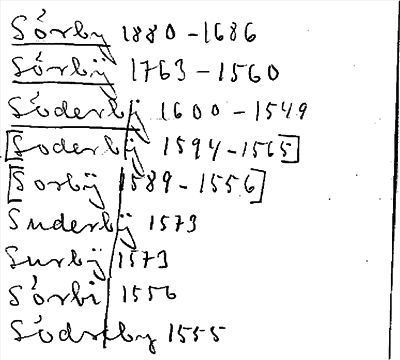 Sórby 1880-1686
Sórbÿ 1763-1560
Sóderbÿ 1600-1549
[Soderbÿ 1594-1565]
[Sorbÿ 1589-1556]
Suderbÿ 1573
Surbÿ 1573
Sórbi 1556
Sódreby 1555